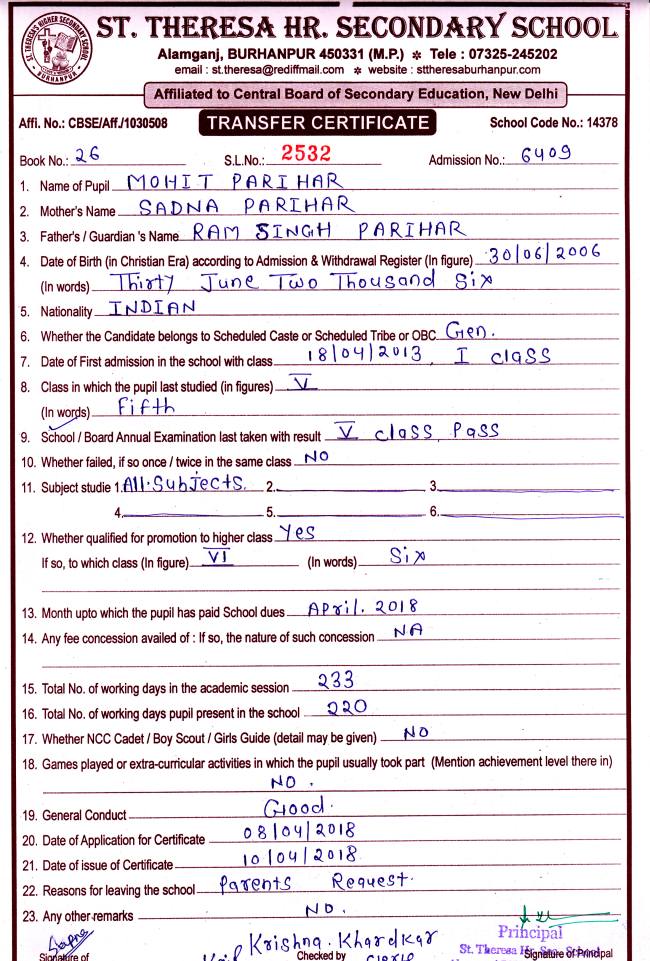 ST. THERESA HR. SECONDARY SCHOOL
ST. THERESA'S HIGHER SECONDARY SCHOOL
BURHANPUR
Alamganj, BURHANPUR 450331 (M.P.) * Tele : 07325-245202
email : st.theresa@rediffmail.com * website : sttheresaburhanpur.com
Affiliated to Central Board of Secondary Education, New Delhi
Affi. No.: CBSE/Aff./1030508 TRANSFER CERTIFICATE School Code No.: 14378
Book No.: 26 S.L.No.: 2532 Admission No.: 6409
1. Name of Pupil MOHIT PARIHAR
2. Mother's Name SADNA PARIHAR
3. Father's / Guardian 's Name RAM SINGH PARIHAR
4. Date of Birth (in Christian Era) according to Admission & Withdrawal Register (In figure) 30/06/2006
(In words) Thirty June Two Thousand Six
5. Nationality INDIAN
6. Whether the Candidate belongs to Scheduled Caste or Scheduled Tribe or OBC Gen.
7. Date of First admission in the school with class 18/04/2013, I class
8. Class in which the pupil last studied (in figures) V
(In words) Fifth
9. School / Board Annual Examination last taken with result V class Pass
10. Whether failed, if so once / twice in the same class NO
11. Subject studie 1. All.Subjects. 2. 3.
4. 5. 6.
12. Whether qualified for promotion to higher class Yes
If so, to which class (In figure) VI (In words) Six
13. Month upto which the pupil has paid School dues April. 2018
14. Any fee concession availed of : If so, the nature of such concession NA
15. Total No. of working days in the academic session 233
16. Total No. of working days pupil present in the school 220
17. Whether NCC Cadet / Boy Scout / Girls Guide (detail may be given) NO
18. Games played or extra-curricular activities in which the pupil usually took part (Mention achievement level there in)
NO.
19. General Conduct Good.
20. Date of Application for Certificate 08/04/2018
21. Date of issue of Certificate 10/04/2018
22. Reasons for leaving the school Parents Request.
23. Any other remarks NO.
Principal
Krishna. Khardkar
St. Theresa Hr. Sec. School
Signature of Checked by Clerk Signature of Principal